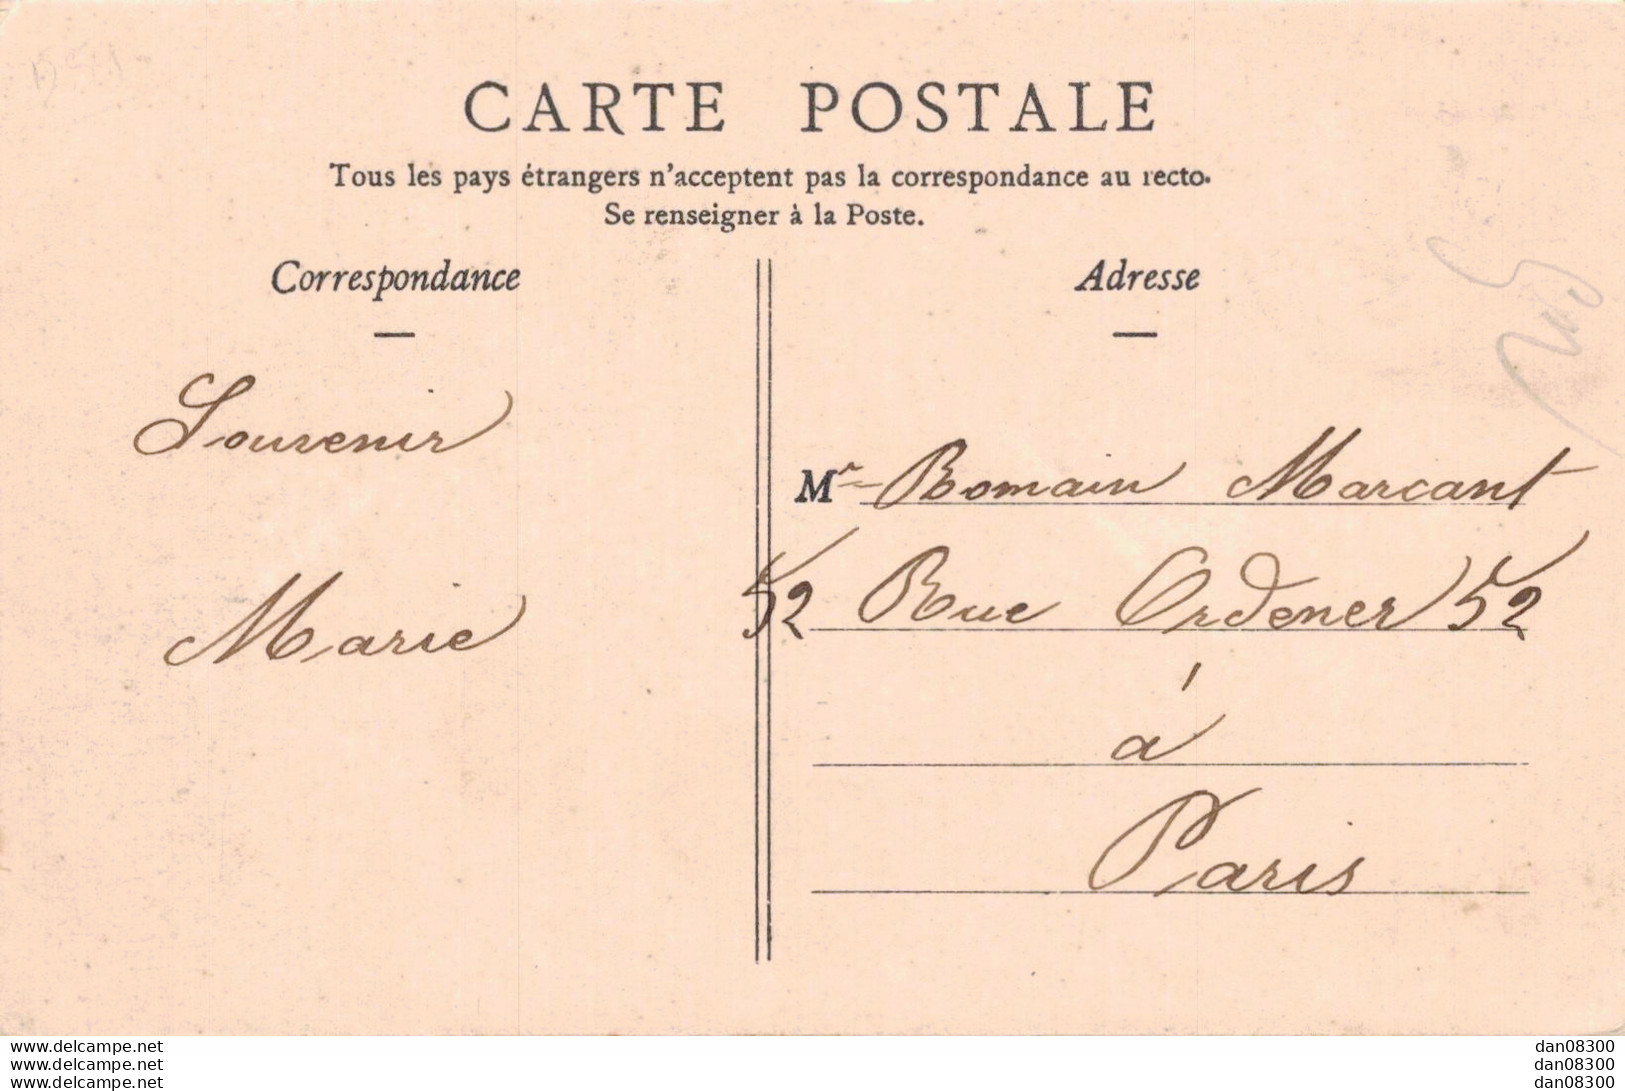 CARTE POSTALE
Tous les pays étrangers n'acceptent pas la correspondance au recto.
Se renseigner à la Poste.
Correspondance
Souvenir
Marie
Adresse
Mr Romain Marcant
52 Rue Ordener 52
à
Paris
www.delcampe.net
www.delcampe.net
www.delcampe.net
dan08300
dan08300
dan08300